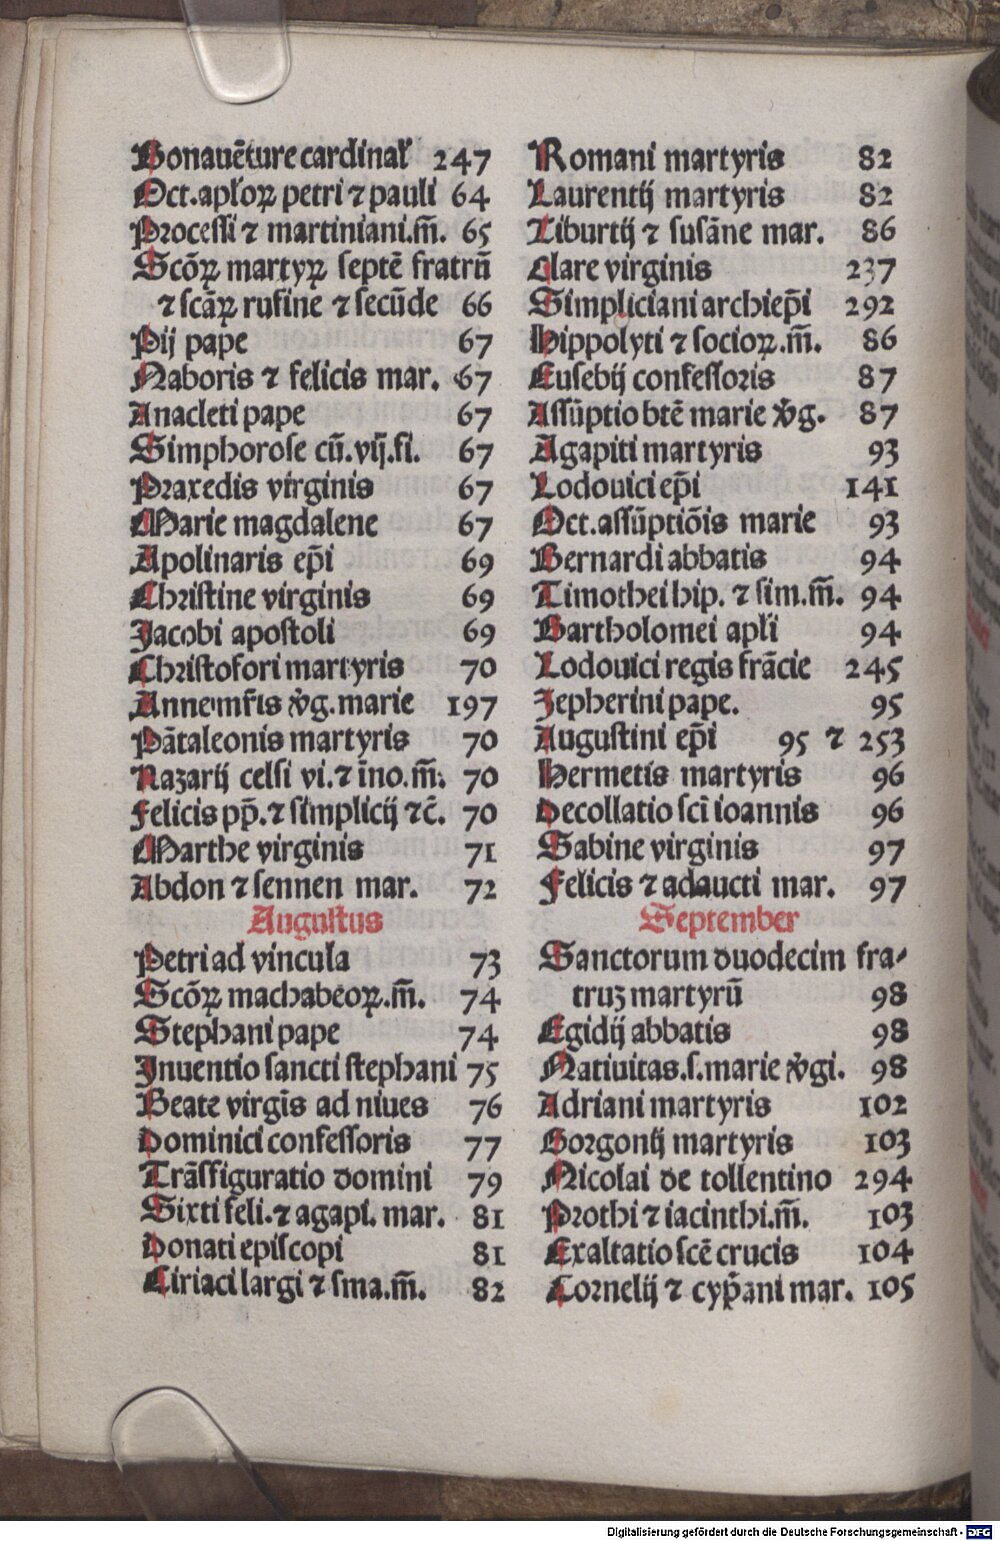 Bonauẽture cardinal̕ 247
Oct.apl̕oꝝ petri ⁊ pauli 64
Processi ⁊ martiniani.m̃. 65
Scõꝝ martyꝝ septẽ fratrũ
⁊ scãꝝ rufine ⁊ secũde 66
Pij pape 67
Naboris ⁊ felicis mar. 67
Anacleti pape 67
Simphorose cũ.vij.fi. 67
Praxedis virginis 67
Marie magdalene 67
Apolinaris ep̃i 69
Christine virginis 69
Jacobi apostoli 69
Christofori martyris 70
Anne mr̃is v̾g. marie 197
Pãtaleonis martyris 70
Nazarij celsi vi.⁊ ĩno.m̃. 70
Felicis pp̃.⁊ simplicij ⁊c̃. 70
Marthe virginis 71
Abdon ⁊ sennen mar. 72
Augustus
Petri ad vincula 73
Scõꝝ machabeoꝝ.m̃. 74
Stephani pape 74
Inuentio sancti stephani 75
Beate virgĩs ad niues 76
Dominici confessoris 77
Trãsfiguratio domini 79
Sixti feli.⁊ agapi. mar. 81
Donati episcopi 81
Ciriaci largi ⁊ sma.m̃. 82
Romani martyris 82
Laurentij martyris 82
Tiburtij ⁊ susãne mar. 86
Clare virginis 237
Simpliciani archiep̃i 292
Hippolyti ⁊ socioꝝ.m̃. 86
Eusebij confessoris 87
Assũptio btẽ marie v̾g. 87
Agapiti martyris 93
Lodouici ep̃i 141
Oct.assũptiõis marie 93
Bernardi abbatis 94
Timothei hip. ⁊ sim.m̃. 94
Bartholomei apl̕i 94
Lodouici regis frãcie 245
Jepherini pape. 95
Augustini ep̃i 95 ⁊ 253
Hermetis martyris 96
Decollatio scĩ ioannis 96
Sabine virginis 97
Felicis ⁊ adaucti mar. 97
September
Sanctorum duodecim fra-
truꝫ martyrũ 98
Egidij abbatis 98
Natiuitas.s.marie v̾gi. 98
Adriani martyris 102
Gorgonij martyris 103
Nicolai de tollentino 294
Prothi ⁊ iacinthi.m̃. 103
Exaltatio scẽ crucis 104
Cornelij ⁊ cyp̃ani mar. 105
Digitalisierung gefördert durch die Deutsche Forschungsgemeinschaft - DFG